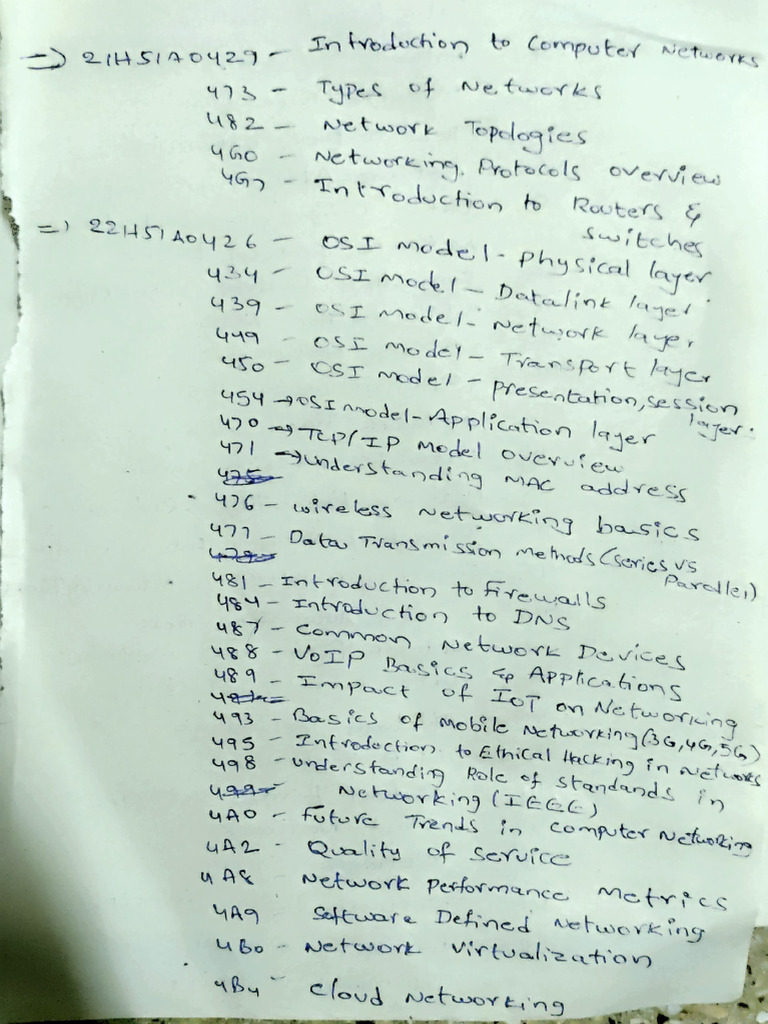 => 21H51A0429 - Introduction to Computer Networks
473 - Types of Networks
482 - Network Topologies
4G0 - Networking Protocols overview
4G7 - Introduction to Routers &
switches
=> 22H51A0426 - OSI model - Physical layer
434 - OSI model - Datalink layer
439 - OSI model - Network layer
449 - OSI model - Transport layer
450 - OSI model - presentation, session
layer.
454 → OSI model - Application layer
470 → TCP/IP Model overview
471 → understanding MAC address
475
476 - wireless networking basics
477 - Data Transmission methods (series vs
Parallel)
479
481 - Introduction to firewalls
484 - Introduction to DNS
487 - Common Network Devices
488 - VoIP Basics & Applications
489 - Impact of IoT on Networking
493 - Basics of Mobile Networking (3G, 4G, 5G)
495 - Introduction to Ethical Hacking in Networks
498 - understanding Role of standands in
Networking (IEEE)
499
4A0 - future Trends in computer Networking
4A2 - Quality of service
4A8 Network Performance Metrics
4A9 Software Defined Networking
4B0 - Network virtualization
4B4 - cloud Networking